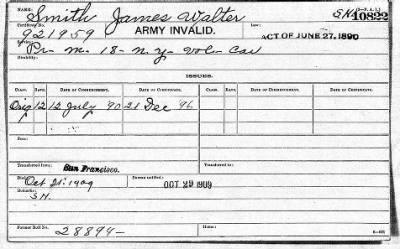 NAME: Smith James Walter
Certificate No. 921959 ARMY INVALID. ACT OF JUNE 27, 1890
SH 10822
Service: Pr. M. 18- N.Y. Vol. Cav
Disability:
ISSUES.
CLASS. RATE. DATE OF COMMENCEMENT. DATE OF CERTIFICATE. CLASS. RATE. DATE OF COMMENCEMENT. DATE OF CERTIFICATE.
Orig 12 12 July 90 21 Dec 96
From: To:
Transferred from: San Francisco.
Died: Oct 21st 1909 OCT 29 1909
Remarks:
S.H.
Former Roll No. 28894-